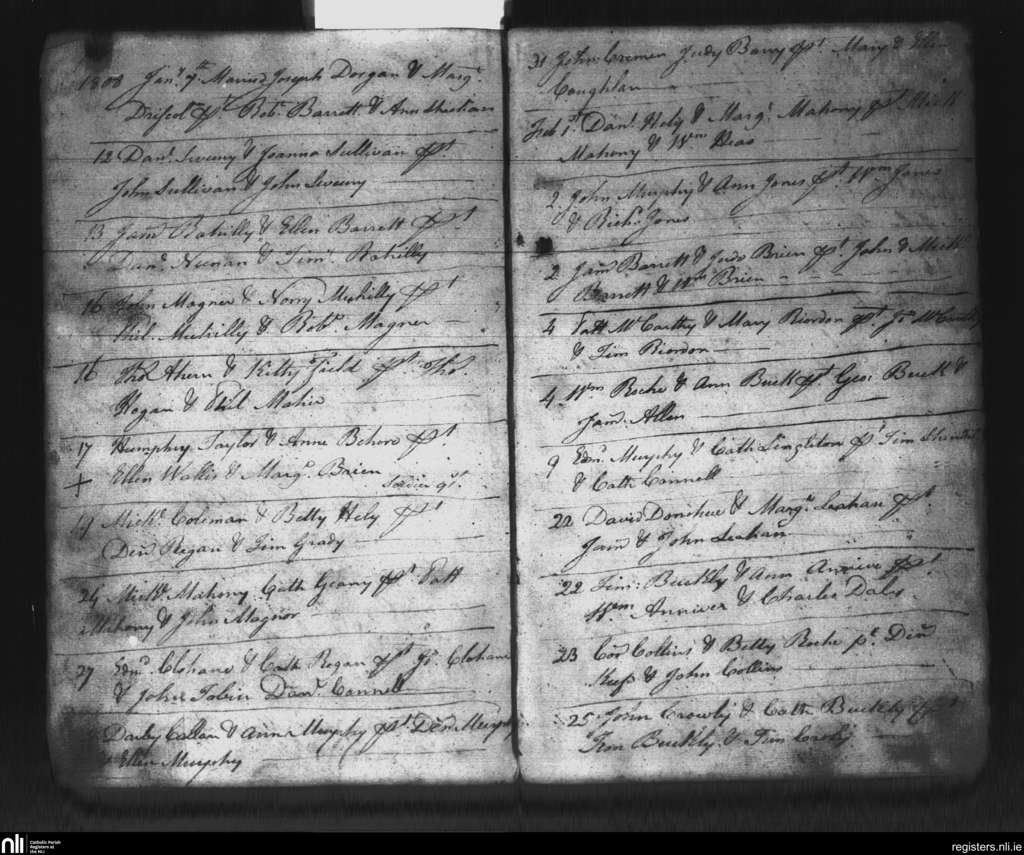 1808 Jany. 7th. Married Joseph Dorgan & Margt.
Driscol ppt. Robt. Barrett & Ann
12 Danl. Sweeny & Joanna Sullivan ppt.
John Sullivan & John Sweeny
13 Jams. Rahilly & Ellen Barrett ppt
Danl. Neenan & Timy. Rahilly
16 John Magner & Norry Mulhilly ppt
Robt. Magner
16 Thos Ahern & Kitty Field ppt Thos.
Hogan & Phil Maher
17 Humphry Taylor & Anne Behere ppt
Ellen Wallis & Margt. Brien
19 Michl. Coleman & Betty Hely ppt
Den Regan & Tim Grady
24 Michl. Mahony Cath Geany ppt Patt
Mahony & John Magnor
27 Edmd. Clohane & Cath Regan ppt Js. Clohane
& John Tobin Danl. Connell
Darby Callan & Ann Murphy ppt Den Murphy
& Ellen Murphy
31 John Cremen Judy Barry ppt. Mary & Ellen
Coughlan
Feb 1st. Danl. Hely & Margt. Mahony ppt Mick
Mahony & Wm
2 John Murphy & Ann Jones ppt Wm Jones
& Richd. Jones
2 Jams Barrett & Judo Brien ppt John & Mick
Barrett & Wm Brien
4 Patt McCarthy & Mary Riordon ppt Js McCarthy
& Tim Riordon
4 Wm Roche & Ann Buck ppt Geo. Buck &
Jams. Allen
9 Edmd. Murphy & Cath Singleton ppt Tim
& Cath Connell
22 David Donohue & Margt. Leahan ppt
Jams & John Leahan
22 Tim: Buckly & Ann Anniver ppt
Wm Anniver & Charles Daly
23 Cors Collins & Betty Roche pt. Den
& John Collins
25 John Crowly & Cath Buckly ppt
Tim Buckly & Tim
nli
Catholic Parish
Registers at
the NLI
registers.nli.ie